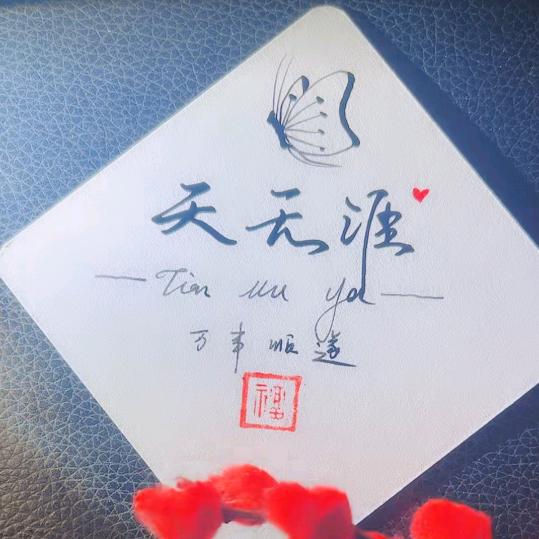 天无涯
Tian wu ya
万事顺遂
福